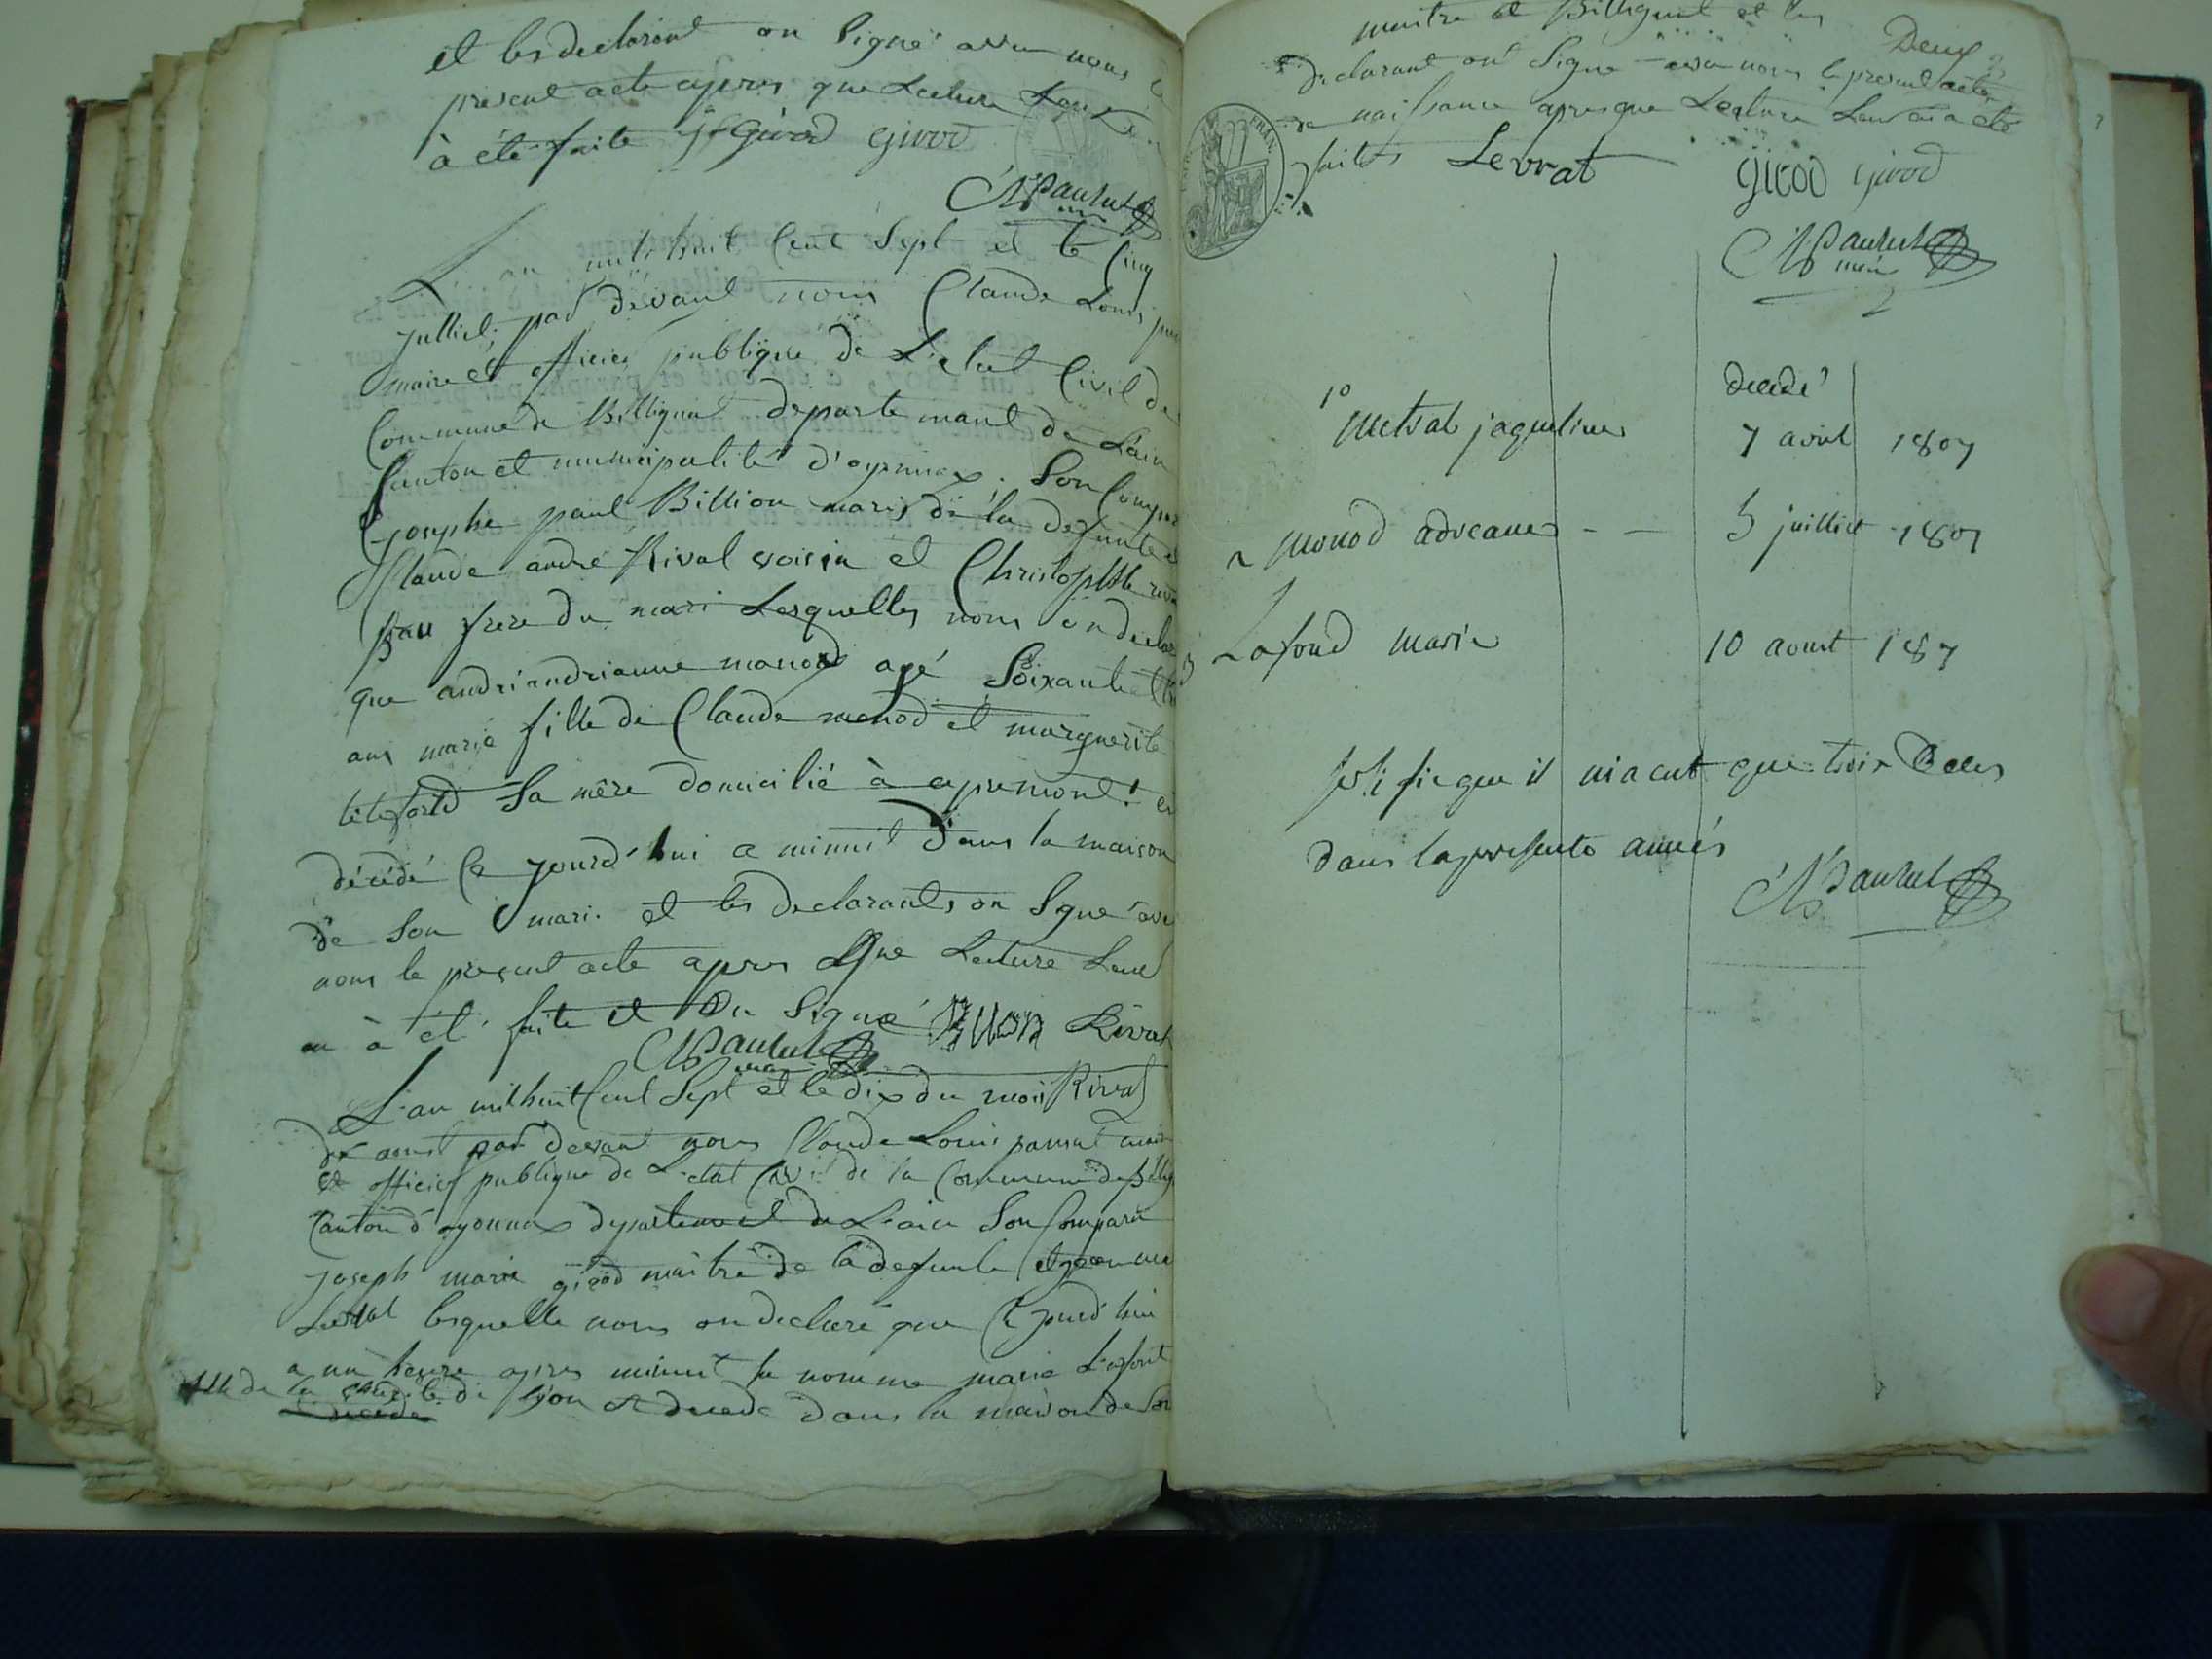 et les declarant on Signé avec nous le
present acte apres que Lecture Leur
à été faite Girod Girod
mil huit Cent Sept et le Cinq
julliet, par devant nous Claude Louis
maire et officier publique de L'etat Civil de
Commune de Billignat departemant de L'ain
Canton et municipalité d'oyonnax. Son Compar
josephe paul Billion maris de la defunte et
Claude andré Rival voisin et Christophle
frere du mari Lesquelles nous on declar
que andriandrianne monod agé Soixante
ans marié fille de Claude monod et marguerite
Sa mêre domicilié à apremont
décédé Ce jourd'hui a minuit dans la maison
de Son mari et les declarants on Signé avec
nous le present acte apres Que Lecture Leur
en à été faite et on Signé Rival
L'an mil huit Cent Sept et le dix du mois Rival
par devant nous Claude Louis maire
et officier publique de L'etat Civil de la Commune de
Canton d'oyonnax departement de L'ain Son Comparu
joseph marie girod maître de la defunte et
Levrat lesquelle nous on declaré que Ce jourd'hui
a un heure apres minuit la nommé marie Lafont
fille de la de lyon et decedé dans la maison de Son
maitre et Billignat et les
Deux
declarant on Signe avec nous le present acte
de naissance apres que Lecture Leur en a eté
faite Levrat Girod Girod
maire
decedé
1º jaqueline 7 avril 1807
2 monod 5 juilliet 1807
3 Lafond marie 10 aoust 187
que il ni a eut que trois Deces
dans la presente année